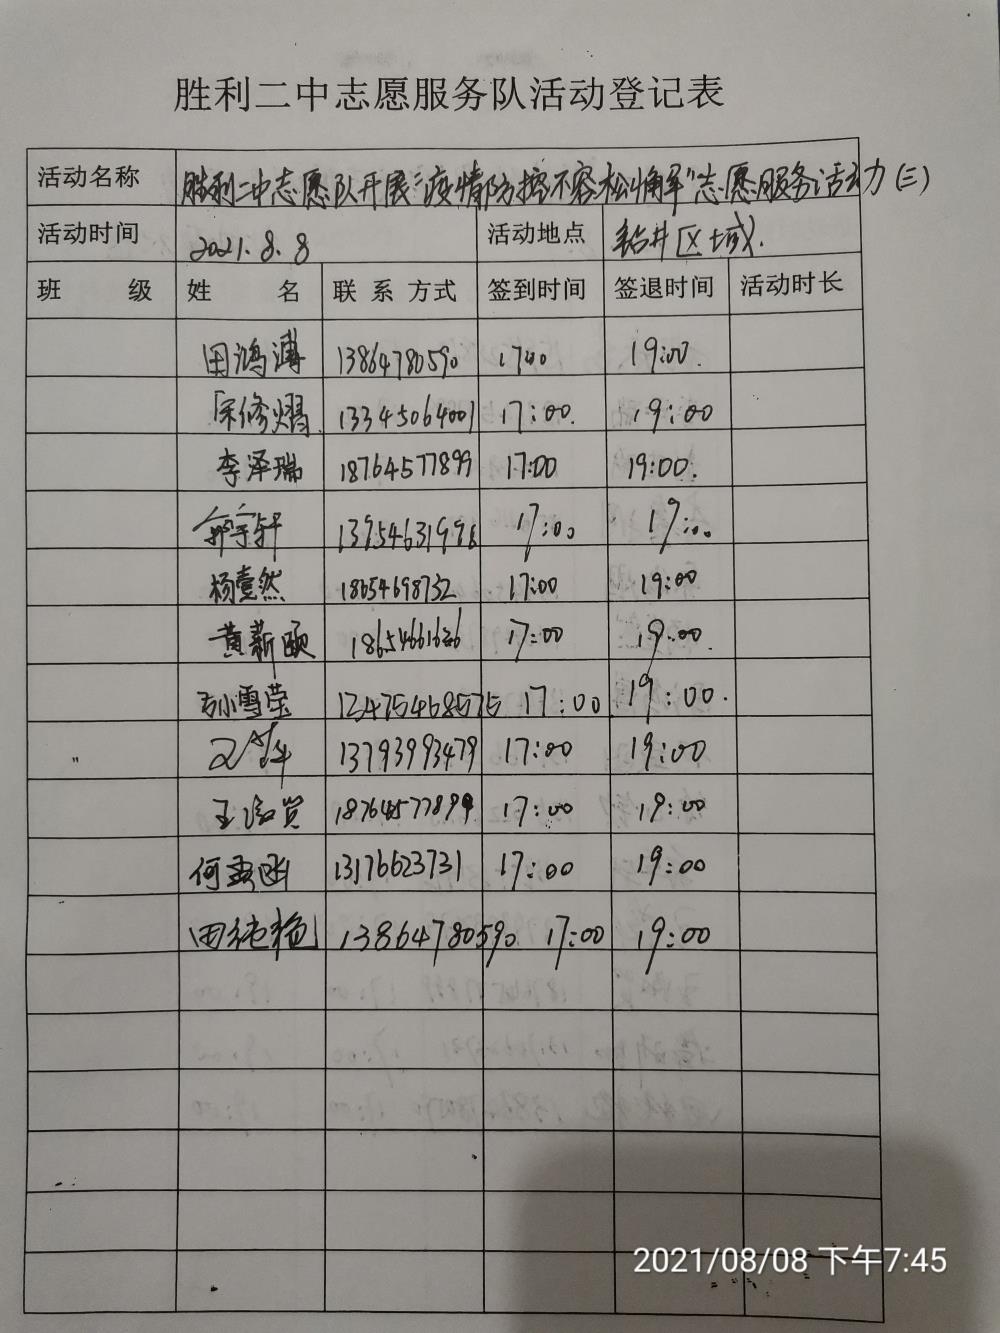 胜利二中志愿服务队活动登记表
活动名称 胜利二中志愿队开展"疫情防控不容松懈"志愿服务活动(三)
活动时间 2021.8.8 活动地点 钻井区域.
班 级 姓 名 联 系 方式 签到时间 签退时间 活动时长
田鸿溥 13864780590 17:00 19:00
宋修熠 13345064001 17:00 19:00
李泽瑞 18764577899 17:00 19:00.
郭宇轩 13954631996 17:00 19:00
杨壹然 18654698732 17:00 19:00
黄新颐 18654661626 17:00 19:00
孙雪莹 17:00 19:00.
" 13793993479 17:00 19:00
王 18764577899 17:00 19:00
何孟函 13176623731 17:00 19:00
田纯艳 13864780590 17:00 19:00
2021/08/08 下午7:45